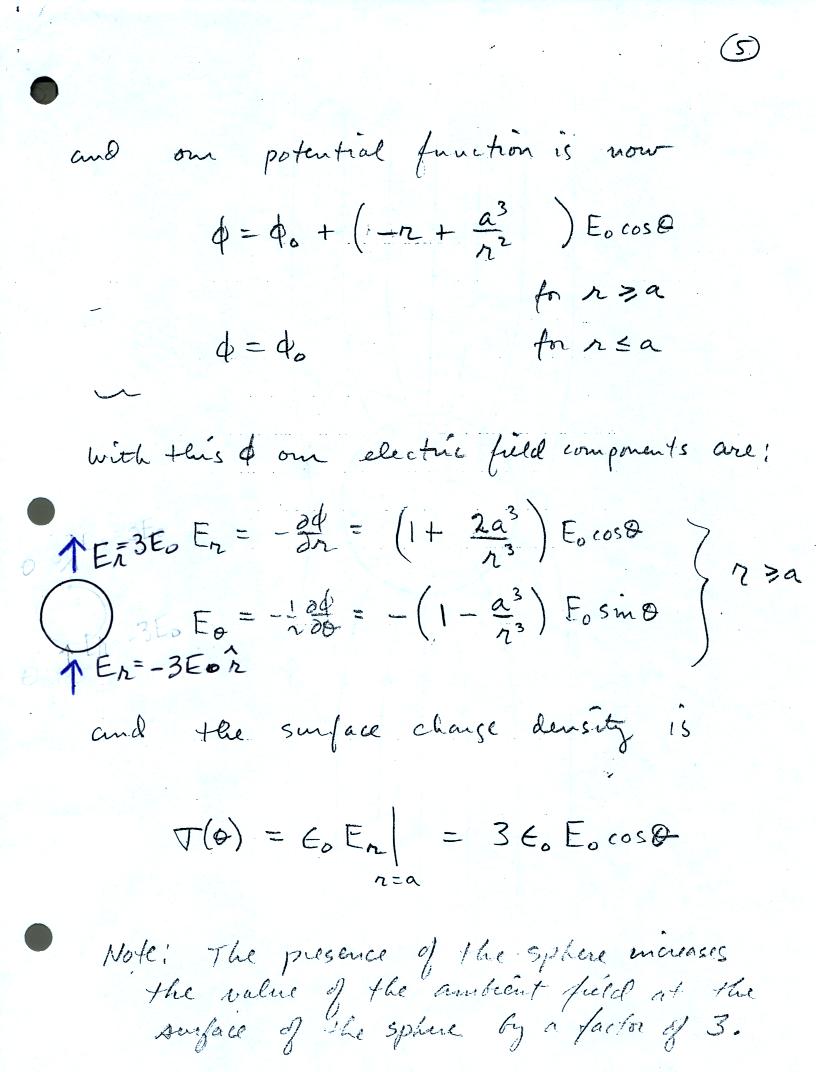 5
and our potential function is now
ϕ = ϕ₀ + (-r + a³/r²) E₀ cosθ
for r ≥ a
ϕ = ϕ₀ for r ≤ a
With this ϕ our electric field components are:
Er = 3E₀ Er = -∂ϕ/∂r = (1 + 2a³/r³) E₀ cosθ
r ≥ a
Eθ = -1/r ∂ϕ/∂θ = -(1 - a³/r³) E₀ sinθ
Er = -3E₀ r̂
and the surface charge density is
σ(θ) = ϵ₀ Er| r=a = 3 ϵ₀ E₀ cosθ
Note: The presence of the sphere increases
the value of the ambient field at the
surface of the sphere by a factor of 3.